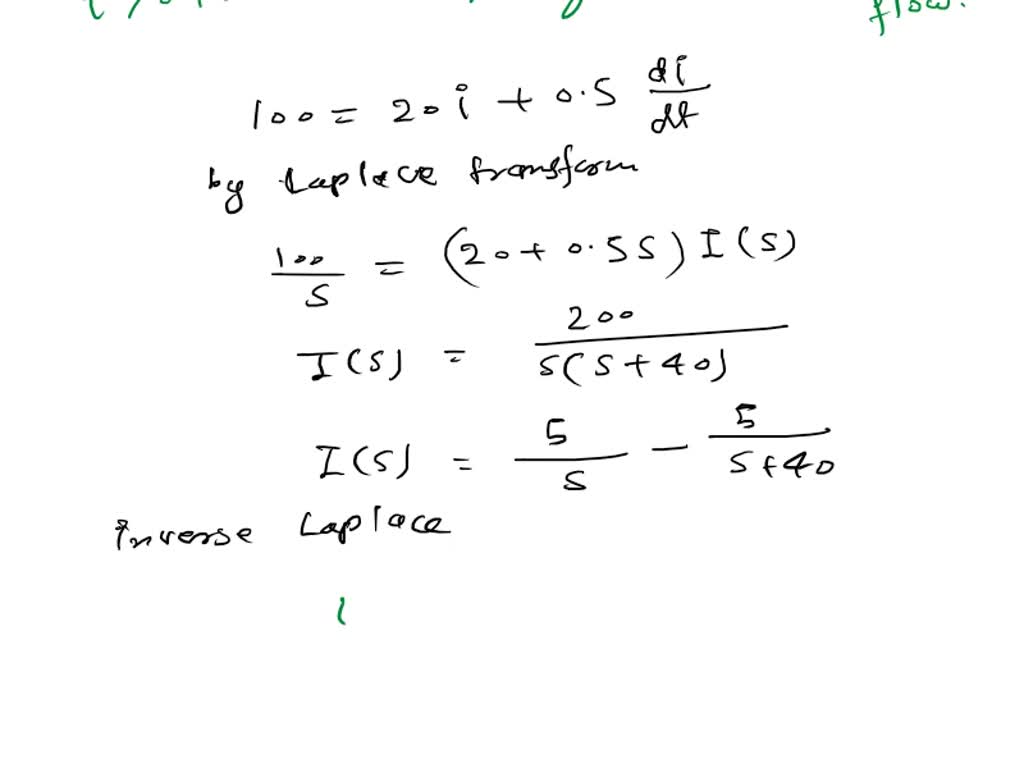 flow.
100 = 20i + 0.5 di/dt
by Laplace transform
100/S = (20 + 0.5S) I(S)
I(S) = 200/S(S+40)
I(S) = 5/S - 5/S+40
inverse Laplace
(